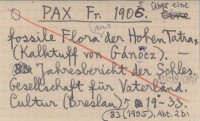 PAX Fr. 1906. Über eine
fossile Flora aus der Hohen Tatra.
(Kalktuff von Gánócz.)
Jahresbericht der Schles.
Gesellschaft für Vaterländ.
Cultur (Breslau) 19-33.
83 (1905), Abt. 2b: